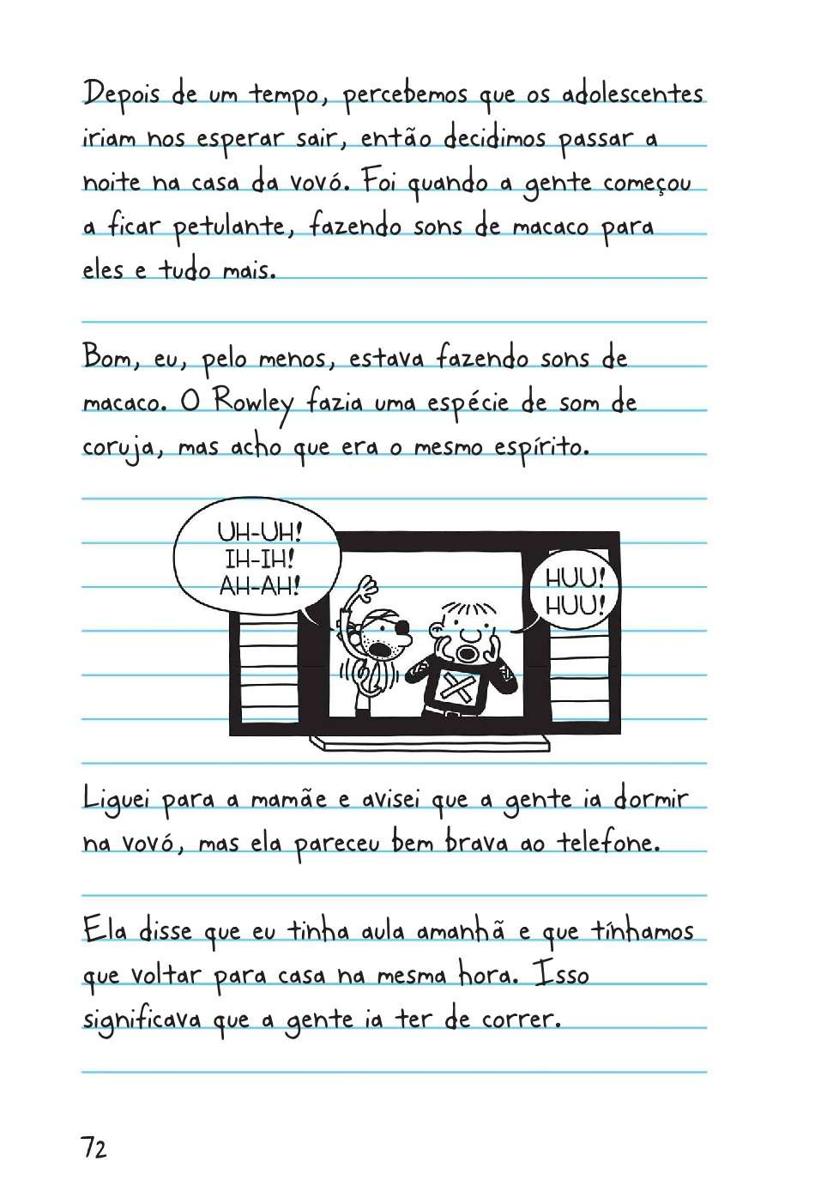 Depois de um tempo, percebemos que os adolescentes
iriam nos esperar sair, então decidimos passar a
noite na casa da vovó. Foi quando a gente começou
a ficar petulante, fazendo sons de macaco para
eles e tudo mais.
Bom, eu, pelo menos, estava fazendo sons de
macaco. O Rowley fazia uma espécie de som de
coruja, mas acho que era o mesmo espírito.
UH-UH!
IH-IH!
AH-AH!
HUU!
HUU!
Liguei para a mamãe e avisei que a gente ia dormir
na vovó, mas ela pareceu bem brava ao telefone.
Ela disse que eu tinha aula amanhã e que tínhamos
que voltar para casa na mesma hora. Isso
significava que a gente ia ter de correr.
72